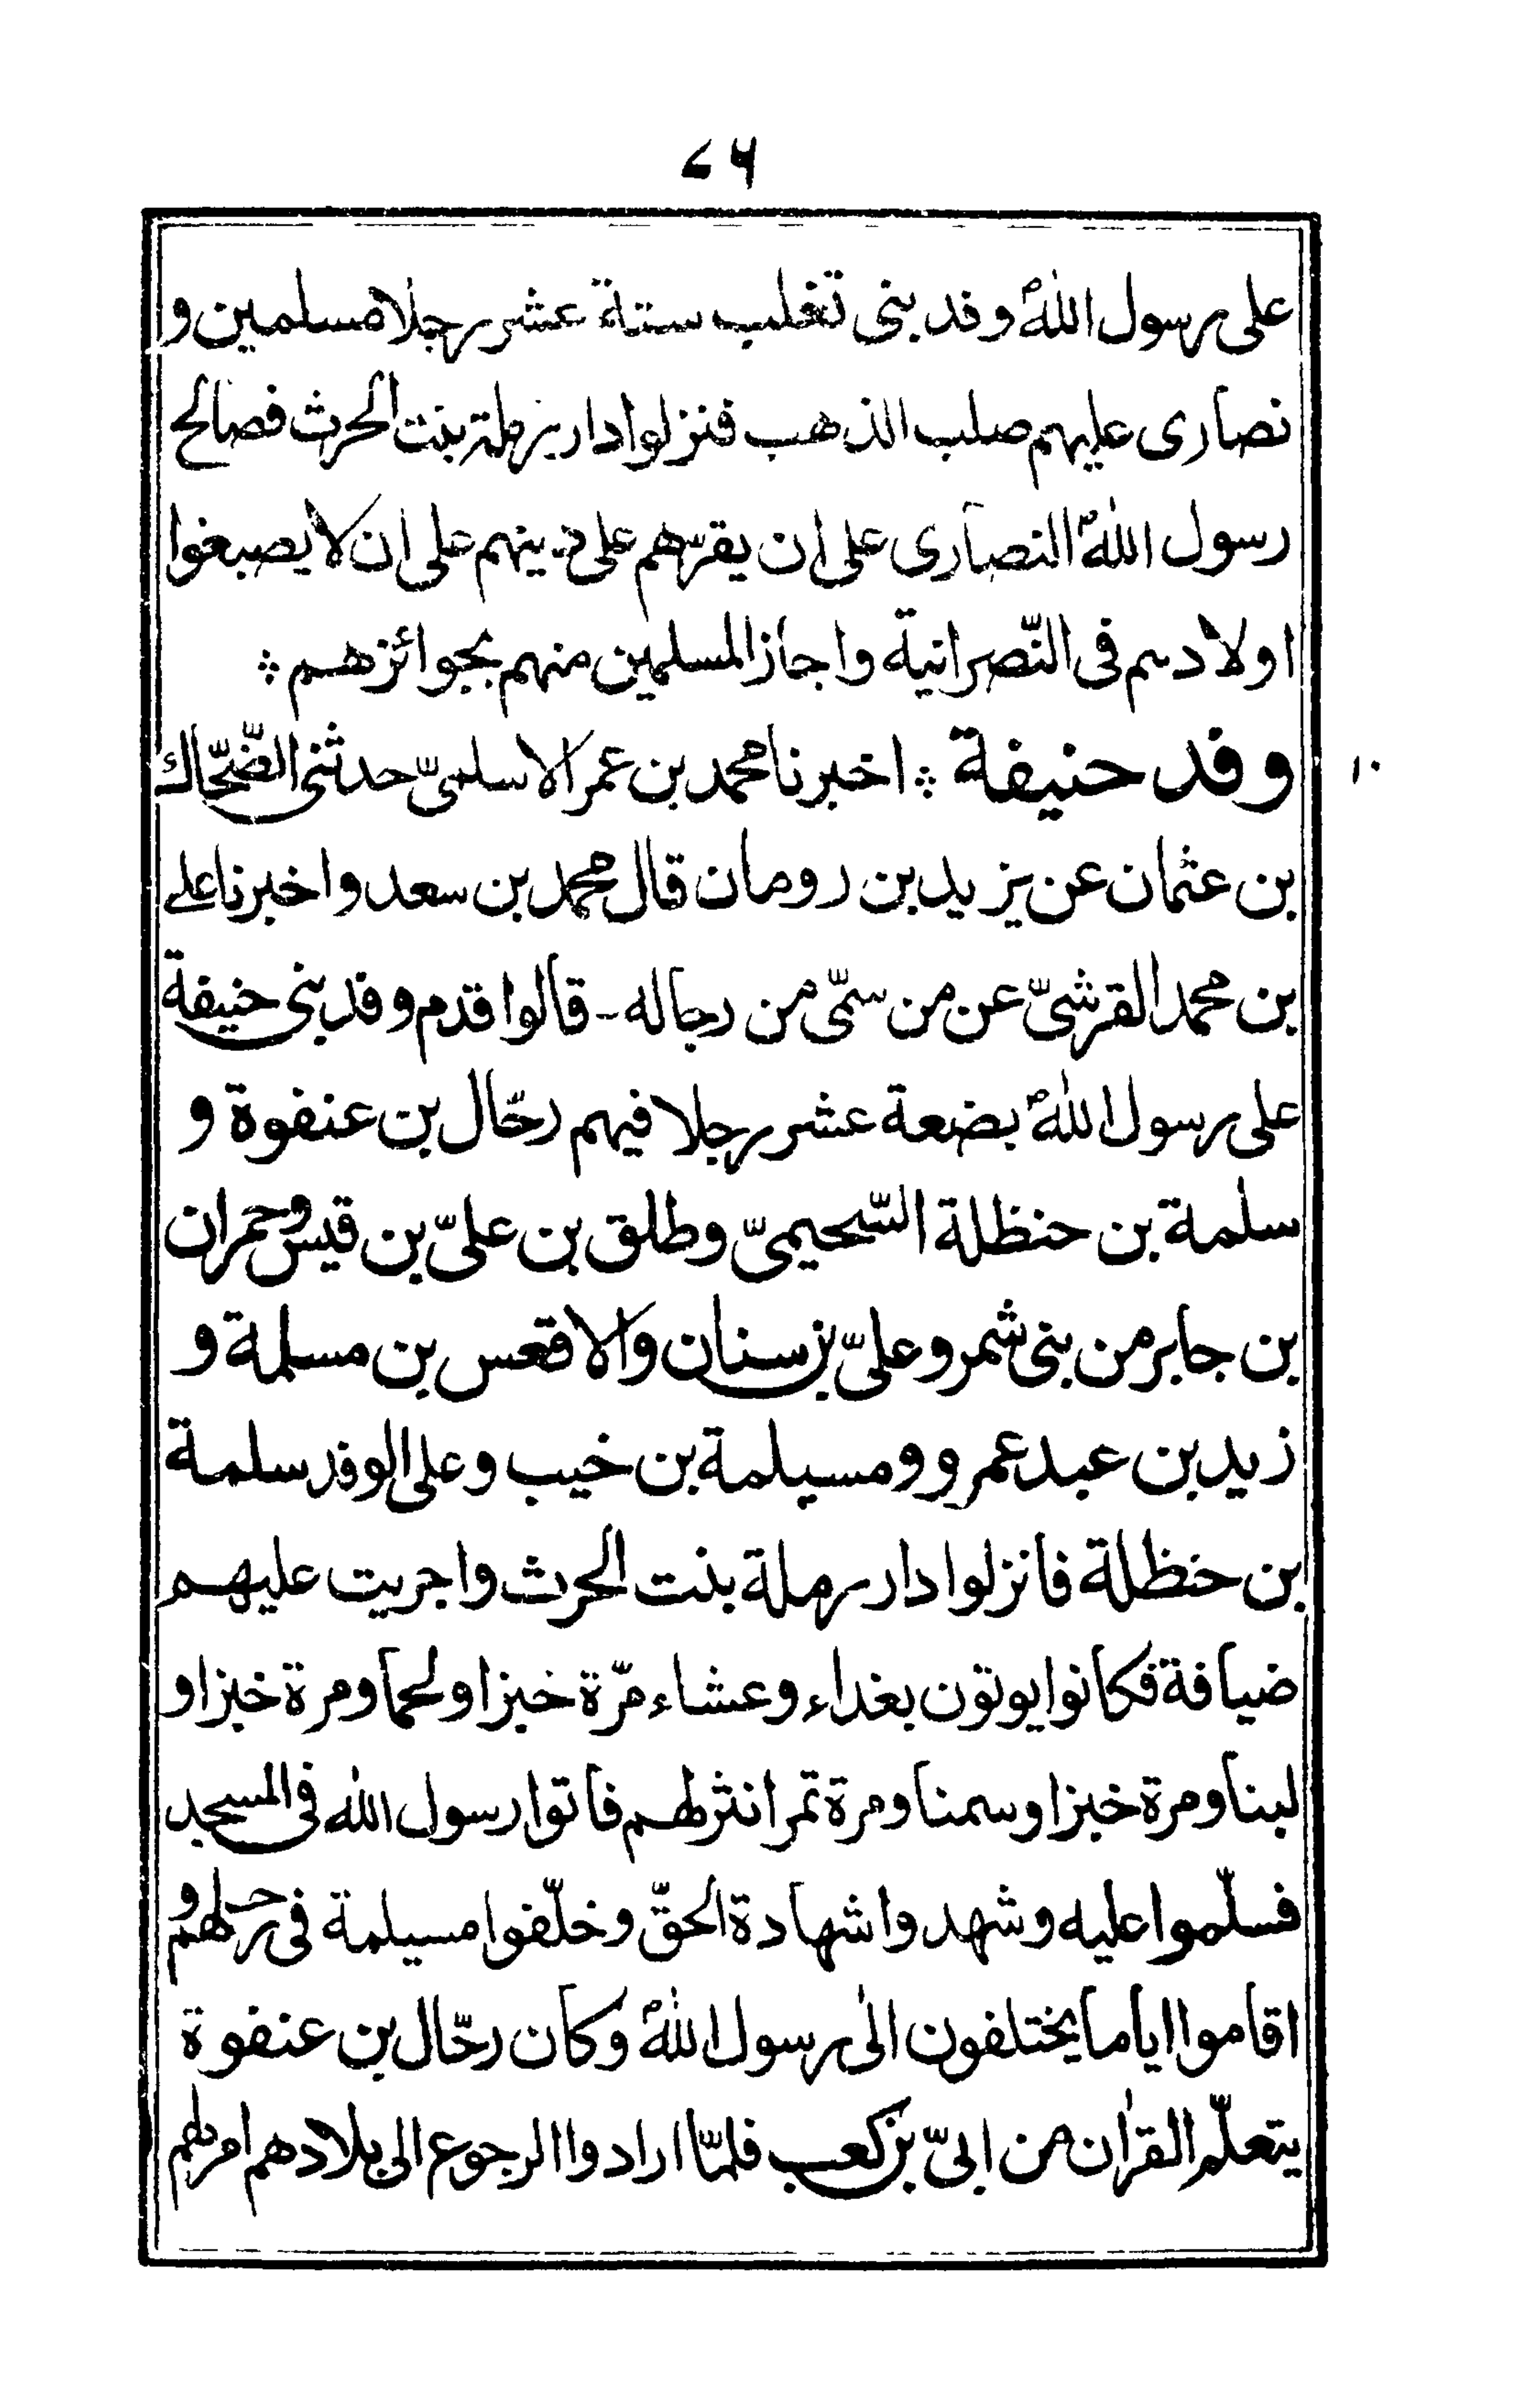 ٧٦
على رسول اللهؐ وفد بنى تغلب ستة عشر رجلا مسلمين و
نصارى عليهم صلب الذهب فنزلوا دار رملة بنت الحرث فصالح
رسول اللهؐ النصارى على ان يقرّهم على دينهم على ان لا يصبغوا
اولادهم فى النّصرانية واجاز المسلمين منهم بجوائزهم ؞
وفد حنيفة ؞ اخبرنا محمد بن عمر الاسلمىّ حدثنى الضّحّاك
١٠
بن عثمان عن يزيد بن رومان قال محمد بن سعد واخبرنا على
بن محمد القرشىّ عن من سمّى من رجاله - قالوا قدم وفد بنى حنيفة
على رسول اللهؐ بضعة عشر رجلا فيهم رحّال بن عنفوة و
سلمة بن حنظلة السّحيمىّ وطلق بن علىّ بن قيس وحمران
بن جابر من بنى شمر وعلىّ بن سنان والاقعس بن مسلمة و
زيد بن عبد عمرو ومسيلمة بن خيب وعلى الوفد سلمة
بن حنظلة فانزلوا دار رملة بنت الحرث واجريت عليهم
ضيافة فكانوا يوتون بغداء وعشاء مرّة خبزا ولحما ومرة خبزا و
لبنا ومرة خبزا وسمنا ومرة تمرا نثر لهم فاتوا رسول الله فى المسجد
فسلّموا عليه وشهدوا شهادة الحقّ وخلّفوا مسيلمة فى رحلهم و
اقاموا اياما يختلفون الى رسول اللهؐ وكان رحّال بن عنفوة
يتعلّم القرآن من ابىّ بن كعب فلمّا ارادوا الرجوع الى بلادهم امر لهم